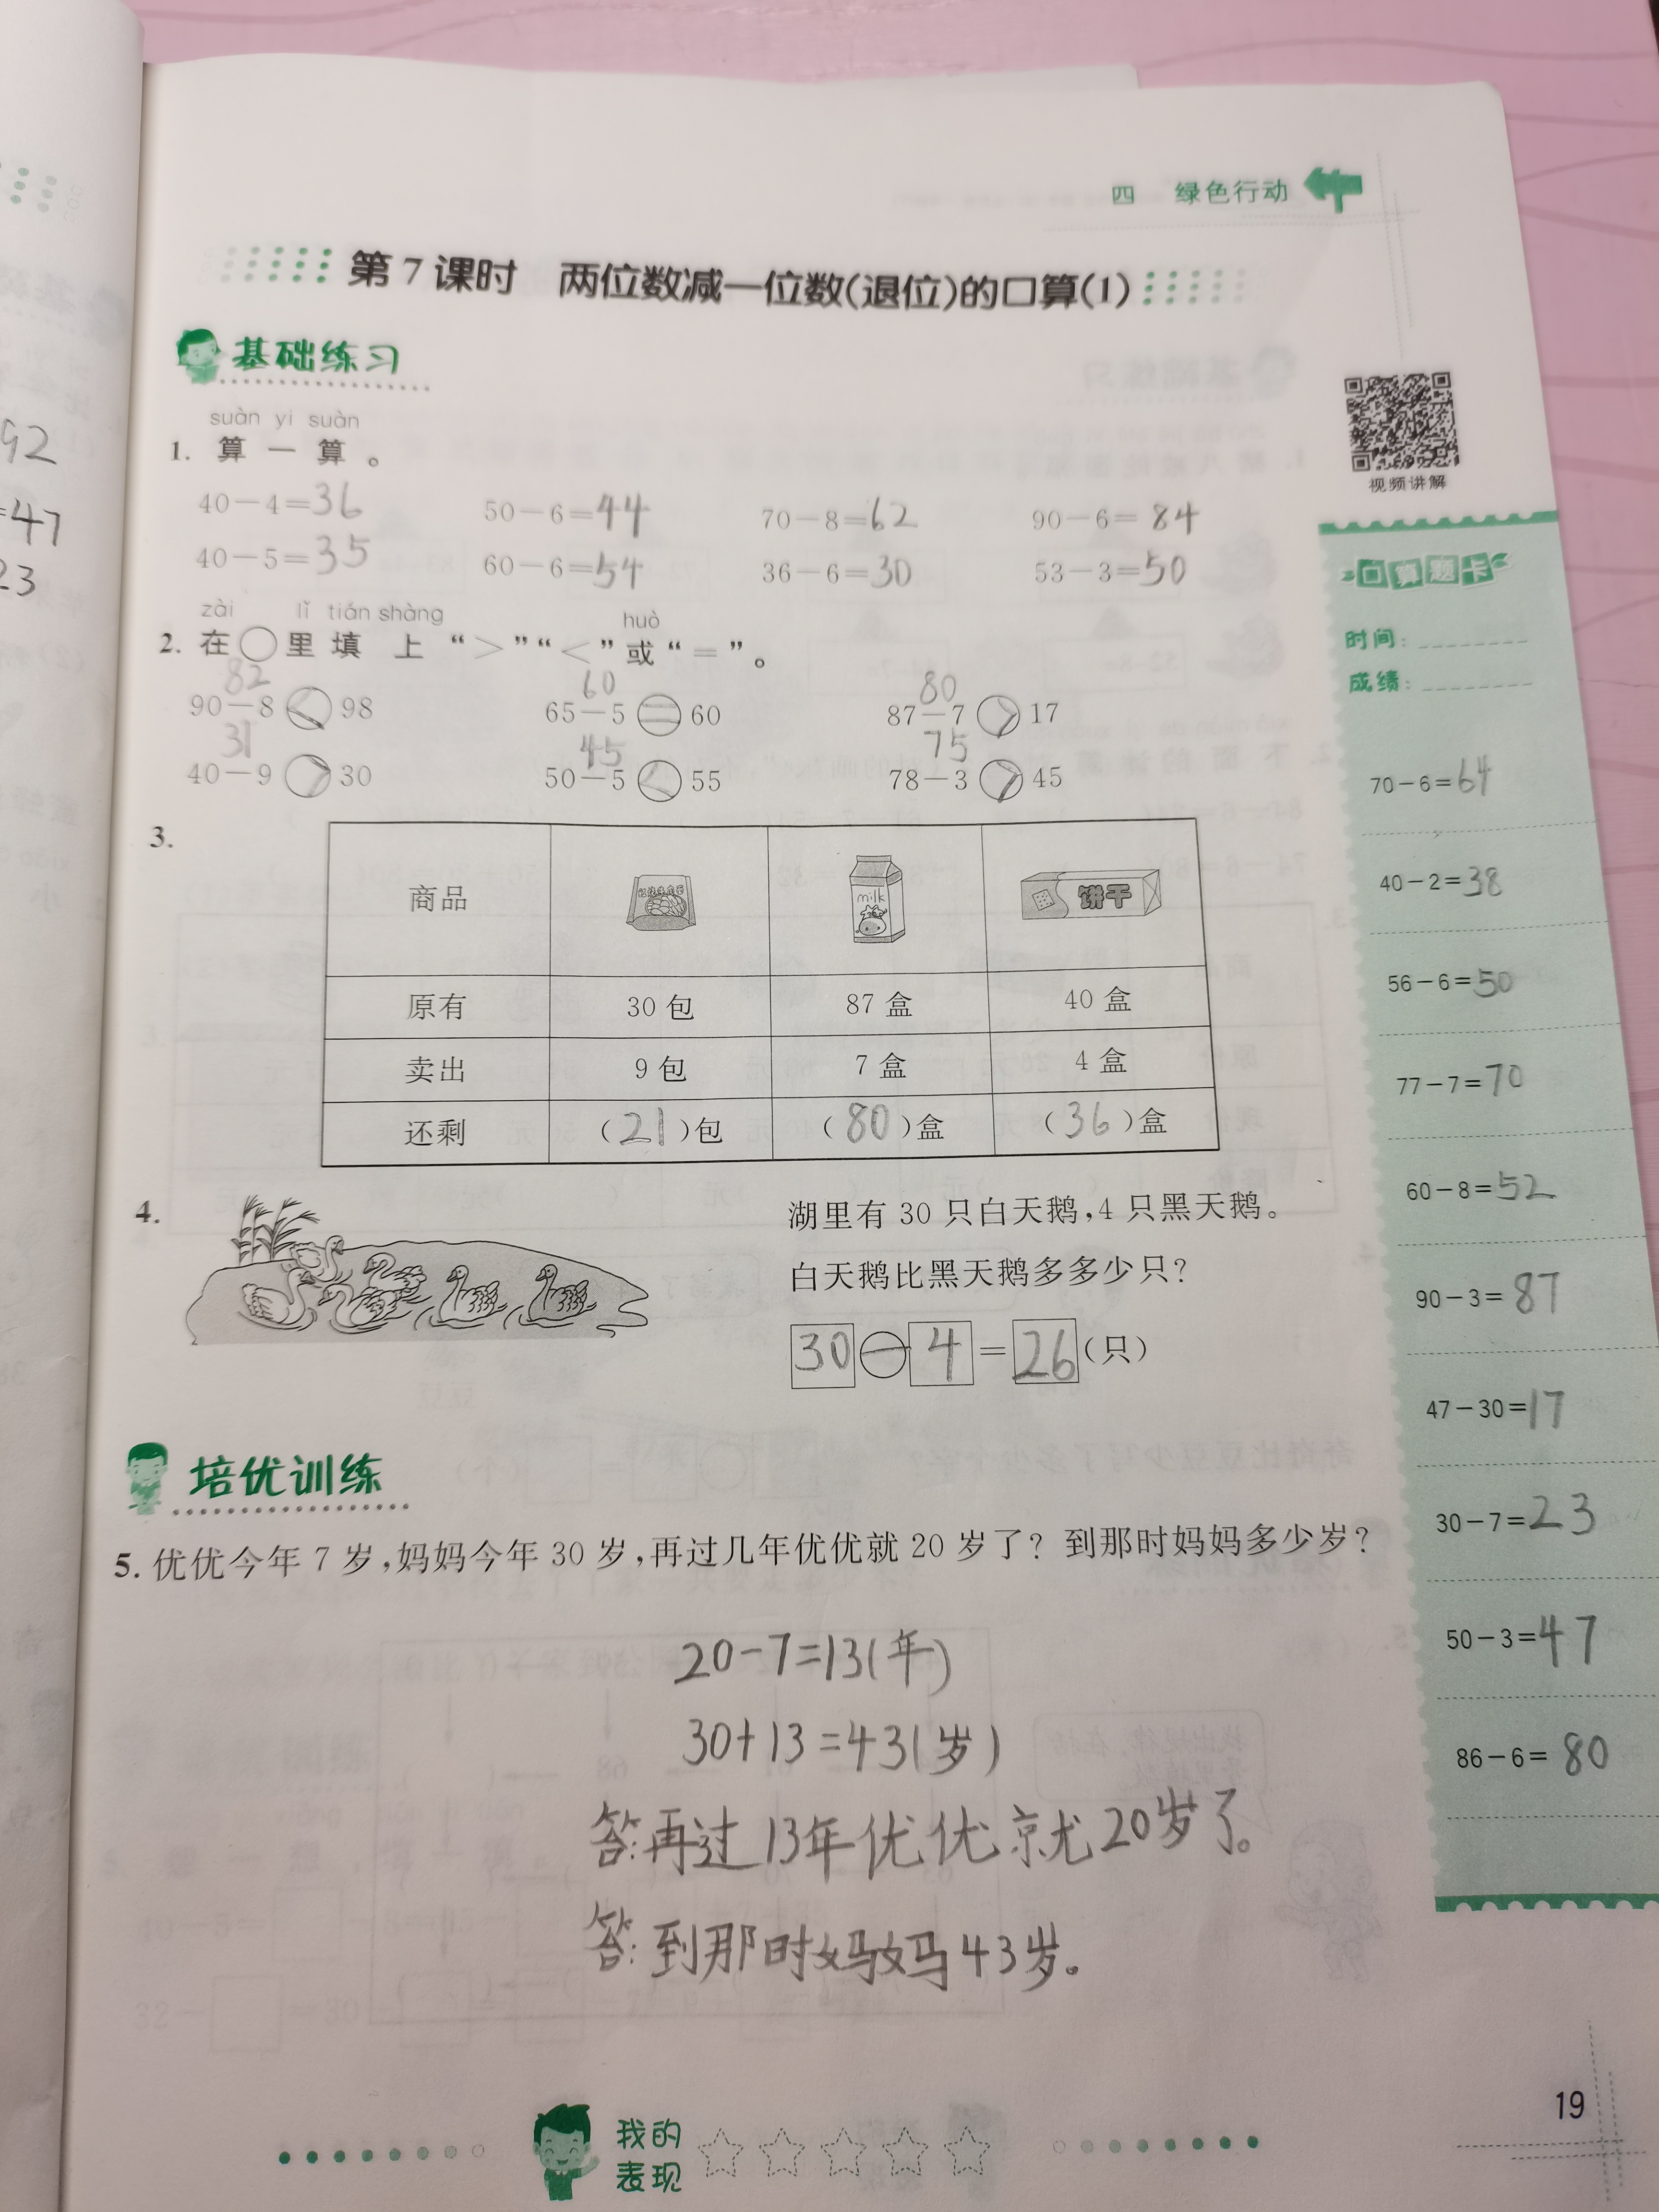 92
=47
23
四 绿色行动
第 7 课时 两位数减一位数(退位)的口算(1)
基础练习
suàn yi suàn
1. 算一算。
40－4＝36 50－6＝44 70－8＝62 90－6＝84
40－5＝35 60－6＝54 36－6＝30 53－3＝50
zài lǐ tián shàng huò
2. 在○里填上“＞”“＜”或“＝”。
82 60 80
90－8＜98 65－5＝60 87－7＞17
31 45 75
40－9＞30 50－5＜55 78－3＞45
3.
商品 milk 饼干
原有 30 包 87 盒 40 盒
卖出 9 包 7 盒 4 盒
还剩 (21)包 (80)盒 (36)盒
4.
湖里有 30 只白天鹅,4 只黑天鹅。
白天鹅比黑天鹅多多少只?
30－4＝26(只)
培优训练
5. 优优今年 7 岁,妈妈今年 30 岁,再过几年优优就 20 岁了? 到那时妈妈多少岁?
20－7＝13(年)
30＋13＝43(岁)
答:再过13年优优就20岁了。
答:到那时妈妈43岁。
视频讲解
口算题卡
时间:
成绩:
70－6＝64
40－2＝38
56－6＝50
77－7＝70
60－8＝52
90－3＝87
47－30＝17
30－7＝23
50－3＝47
86－6＝80
我的
表现
19